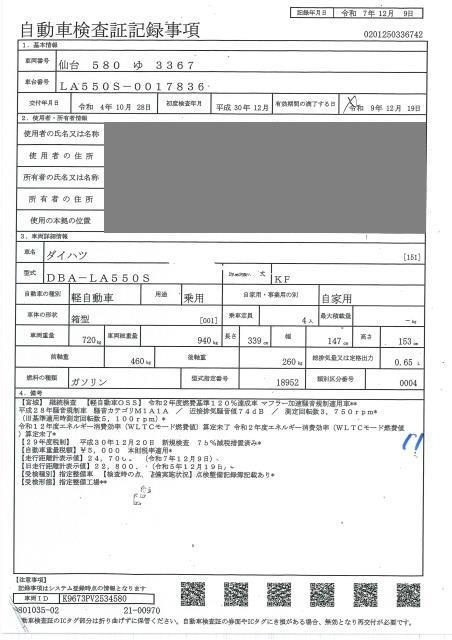 記録年月日 令和 7年12月 9日
自動車検査証記録事項
0201250336742
1．基本情報
車両番号 仙台 580 ゆ 3367
車台番号 LA550S-0017836
交付年月日 令和 4年10月28日 初度検査年月 平成30年12月 有効期間の満了する日 令和 9年12月19日
2．使用者・所有者情報
使用者の氏名又は名称
使用者の住所
所有者の氏名又は名称
所有者の住所
使用の本拠の位置
3．車両詳細情報
車名 ダイハツ [151]
型式 DBA-LA550S 式 KF
自動車の種別 軽自動車 用途 乗用 自家用・事業用の別 自家用
車体の形状 箱型 [001] 乗車定員 4人 最大積載量 -kg
車両重量 720kg 車両総重量 940kg 長さ 339cm 幅 147cm 高さ 153cm
前軸重 460kg 後軸重 260kg 総排気量又は定格出力 0.65 L
燃料の種類 ガソリン 型式指定番号 18952 類別区分番号 0004
4．備考
【宮城】 継続検査 【軽自動車OSS】 令和2年度燃費基準120%達成車 マフラー加速騒音規制適用車**
平成28年騒音規制車 騒音カテゴリM1A1A ／ 近接排気騒音値74dB ／ 測定回転数3，750rpm*
(旧基準適用時測定回転数5，100rpm)*
令和12年度エネルギー消費効率(WLTCモード燃費値) 算定未了 令和2年度エネルギー消費効率(WLTCモード燃費値)
算定未了*
【29年度税制】 平成30年12月20日 新規検査 75%減税措置済み*
【自動車重量税額】 ¥5，000 本則税率適用*
【走行距離計表示値】 24，70 (令和7年12月9日)*
【旧走行距離計表示値】 22，800． (令和5年12月19日)*
【受検種別】指定整備車 【検査時の点 備実施状況】点検整備記録簿記載あり*
【受検形態】指定整備工場**
【注意事項】
記録事項はシステム登録時点の情報となります
車両ID K9673PV2534580
801035-02 21-00970
自動車検査証のICタグ部分は折り曲げずに保管ください。自動車検査証の券面やICタグにき損がある場合、無効となり再交付が必要です。